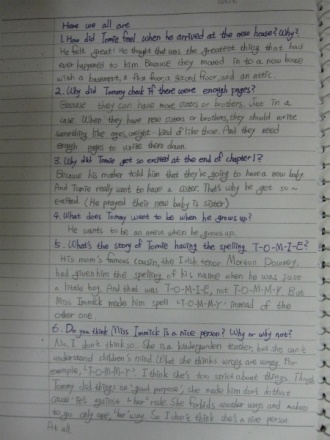 Here we all are
1. How did Tomie feel when he arrived at the new house? Why?
He felt great! He thought that was the greatest thing that had
ever happened to him. Because they moved in to a new house
with a basement, a first floor, a second floor, and an attic.
2. Why did Tommy check if there were enough pages?
Because they can have more sisters or brothers. Just in a
case. When they have new sisters or brothers, they should write
something like ages, weight kind of like those. And they need
enough pages to write them down.
3. Why did Tomie get so excited at the end of chapter 1?
Because his mother told him that they're going to have a new baby.
And Tomie really want to have a sister. That's why he got so ~
excited. (He prayed their new baby is sister)
4. What does Tommy want to be when he grows up?
He wants to be an artist when he grows up.
5. What's the story of Tomie having the spelling T-O-M-I-E?
His mom's famous cousin, the Irish tenor Morton Downey,
had given him the spelling of his name when he was just
a little boy. And that was T-O-M-I-E, not T-O-M-M-Y. But
Miss Immick made him spell "T-O-M-M-Y" instead of the
other one.
6. Do you think Miss Immick is a nice person? Why or why not?
No, I don't think so. She is a kindergarden teacher, but she can't
understand children's mind. What she thinks wrong are wrong. For
example, "T-O-M-M-Y". I think she's too strict about things.
Tommy did things on good purpose, she made him don't do that
cause it's against "her" rule. She forbids another ways and makes
to go only one, "her way". So I don't think she's a nice person
At all.